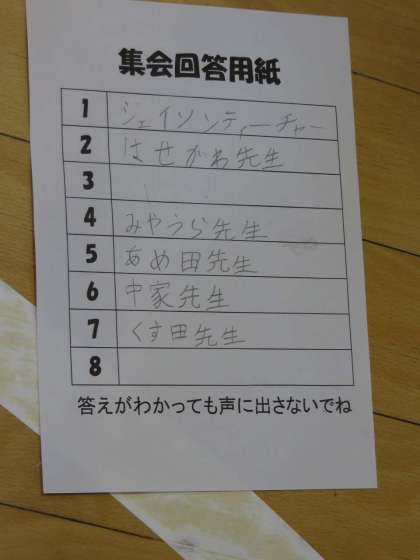 集会回答用紙
1 ジェイソンティーチャー
2 はせがわ先生
3
4 みやうら先生
5 あめ田先生
6 中家先生
7 くす田先生
8
答えがわかっても声に出さないでね